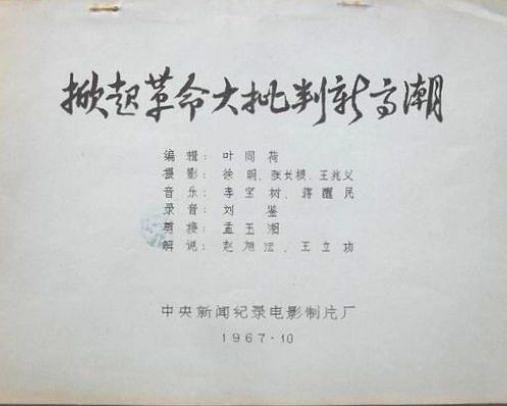 掀起革命大批判新高潮
编 辑： 叶 同 荷
摄 影： 徐 明、张长根、王兆义
音 乐： 李宝树、蒋醒民
录 音： 刘 鉴
剪 接： 孟玉湘
解 说： 赵旭法、王立功
中央新闻纪录电影制片厂
1967·10